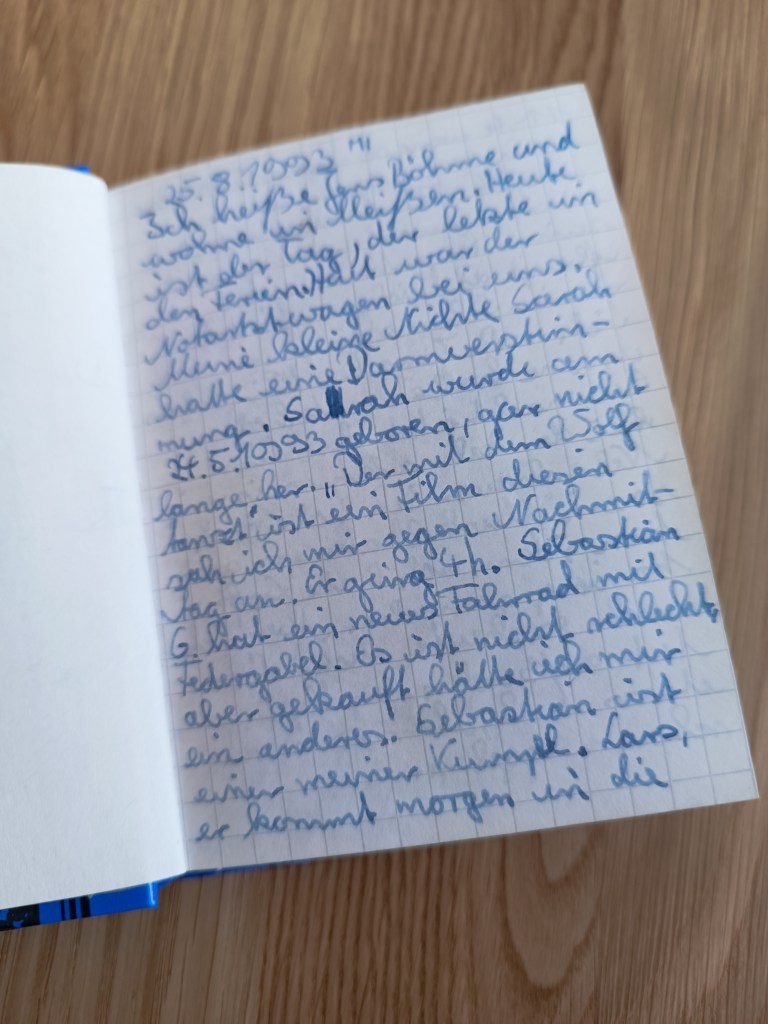 25.8.1993 Mi
Ich heiße Jens Böhme und
wohne in Meißen. Heute
ist der Tag, der letzte in
den Ferien. Half war der
Notartstwagen bei uns.
Meine kleine Nichte Sarah
hatte eine Darmverstim-
mung. Sarah wurde am
24.5.1993 geboren, gar nicht
lange her. "Der mit dem Wolf
tanzt" ist ein Film diesen
sah ich mir gegen Nachmit-
tag an. Er ging 4h. Sebastian
G. hat ein neues Fahrrad mit
Federgabel. Es ist nicht schlecht,
aber gekauft hätte ich mir
ein anderes. Sebastian ist
einer meiner Kumpel. Lars,
er kommt morgen in die